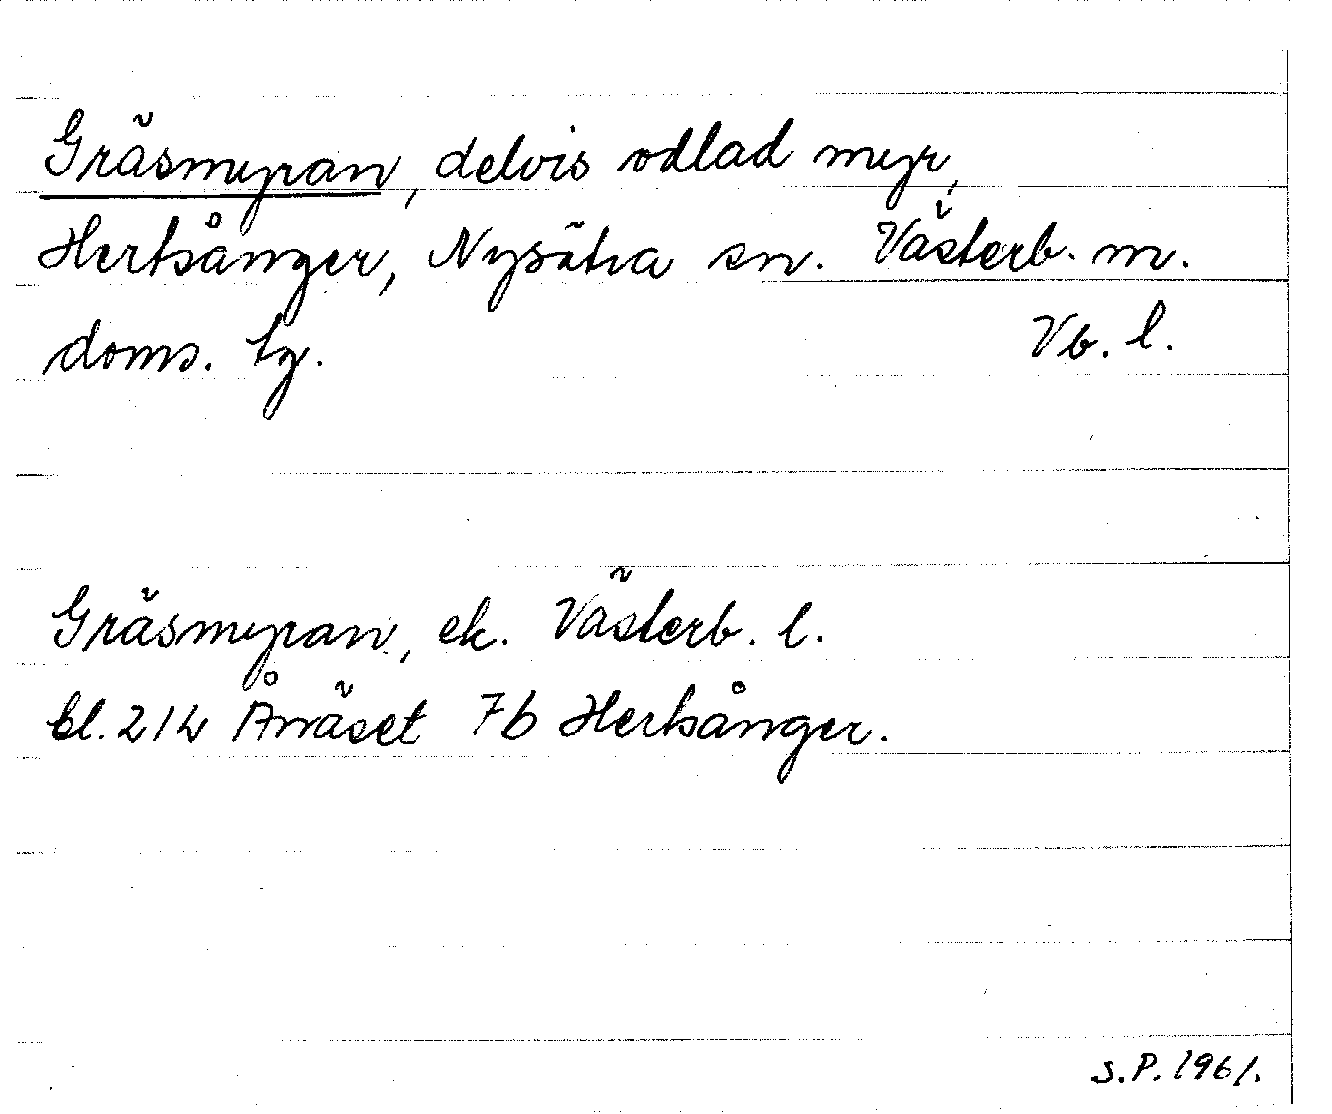 Gräsmyran, delvis odlad myr,
Hertsånger, Nysätra sn. Västerb. m.
doms. tg. Vb. l.
Gräsmyran, ek. Västerb. l.
bl. 214 Ånäset 7b Hertsånger.
S.P. 1961.